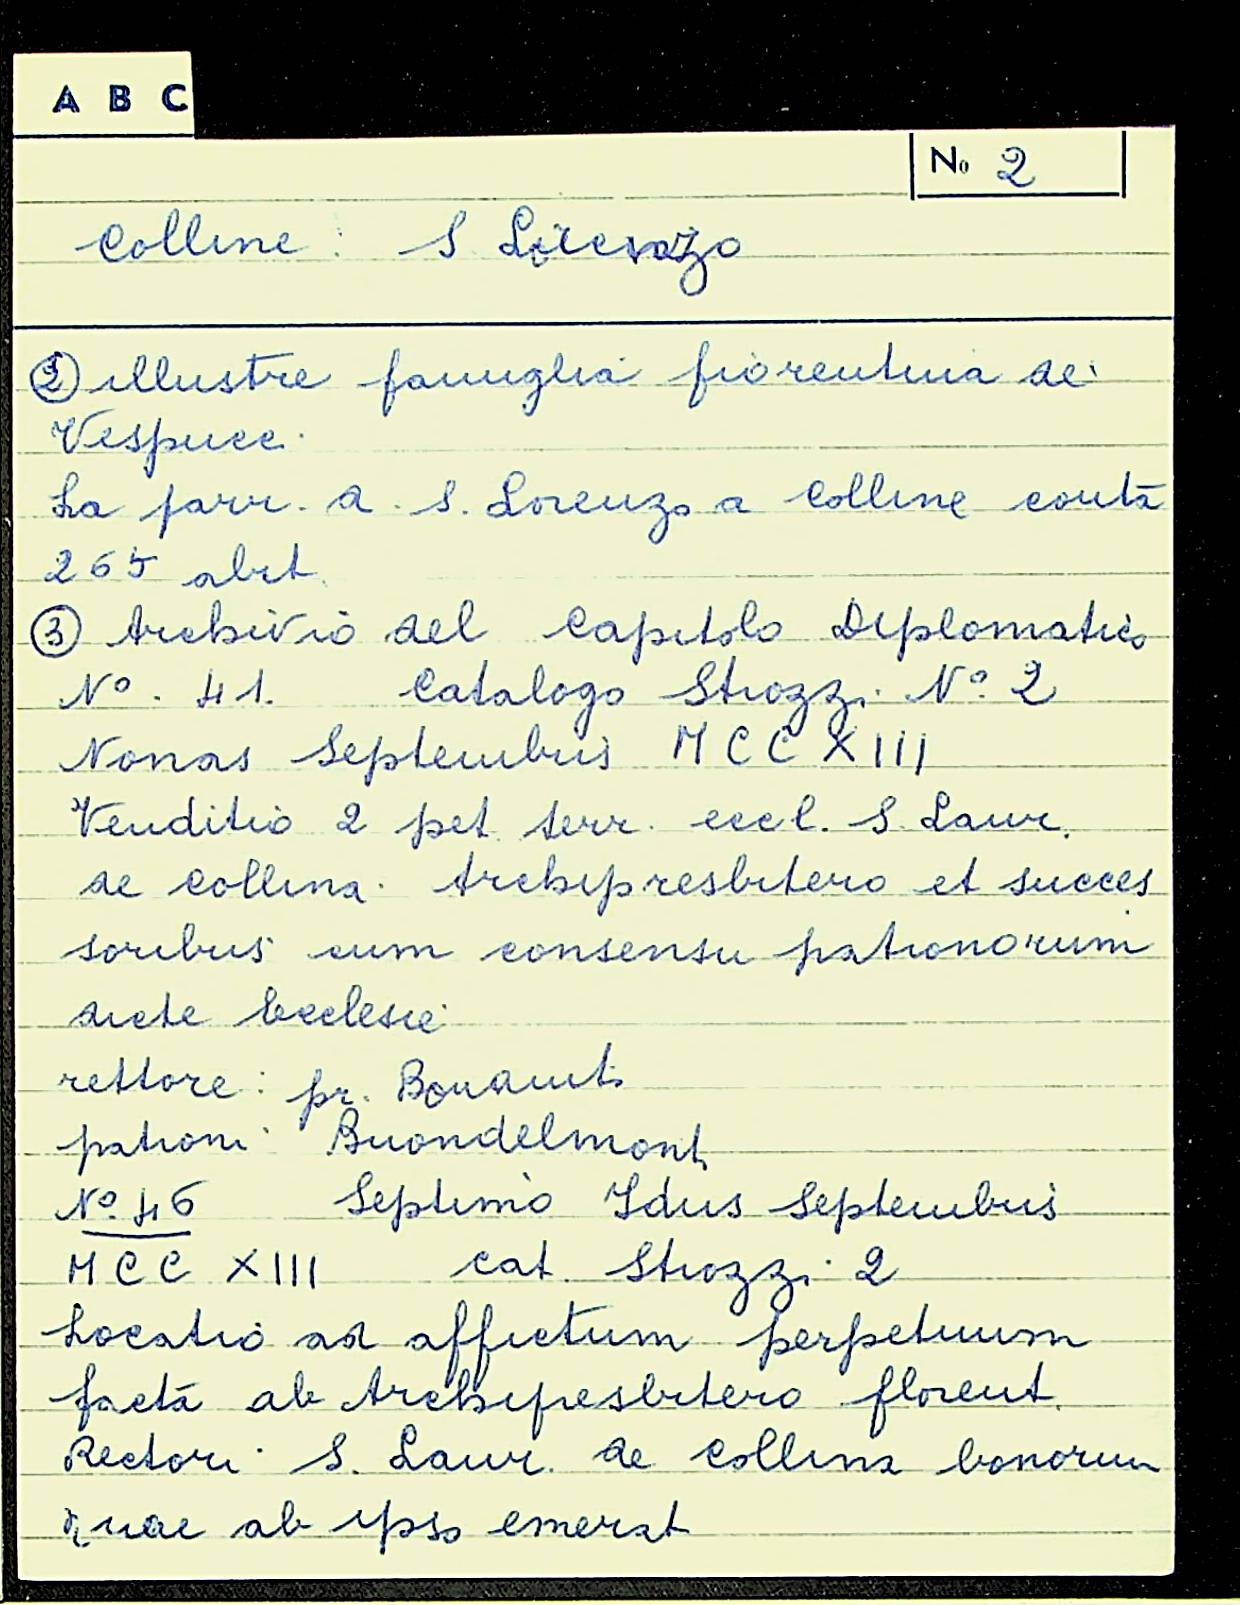 A B C
No 2
Colline: S Lorenzo
② illustre famiglia fiorentina dei
Vespucci.
La parr. a. S. Lorenzo a Colline conta
265 abit.
③ Archivio del Capitolo Diplomatico
No. 41. Catalogo Strozzi No. 2
Nonas Septembris MCCXIII
Venditio 2 pet. terr. eccl. S. Laur.
de Collina. Archipresbitero et succes
soribus cum consensu patronorum
dicte Ecclesie
rettore: pr. Bonaiuti
patroni: Buondelmonti
No. 46 Septimo Idus Septembris
MCCXIII cat. Strozzi 2
Locatio ad affictum perpetuum
facta ab Archipresbitero florent.
Rectori S. Laur. de Collina bonorum
quae ab ipso emerat